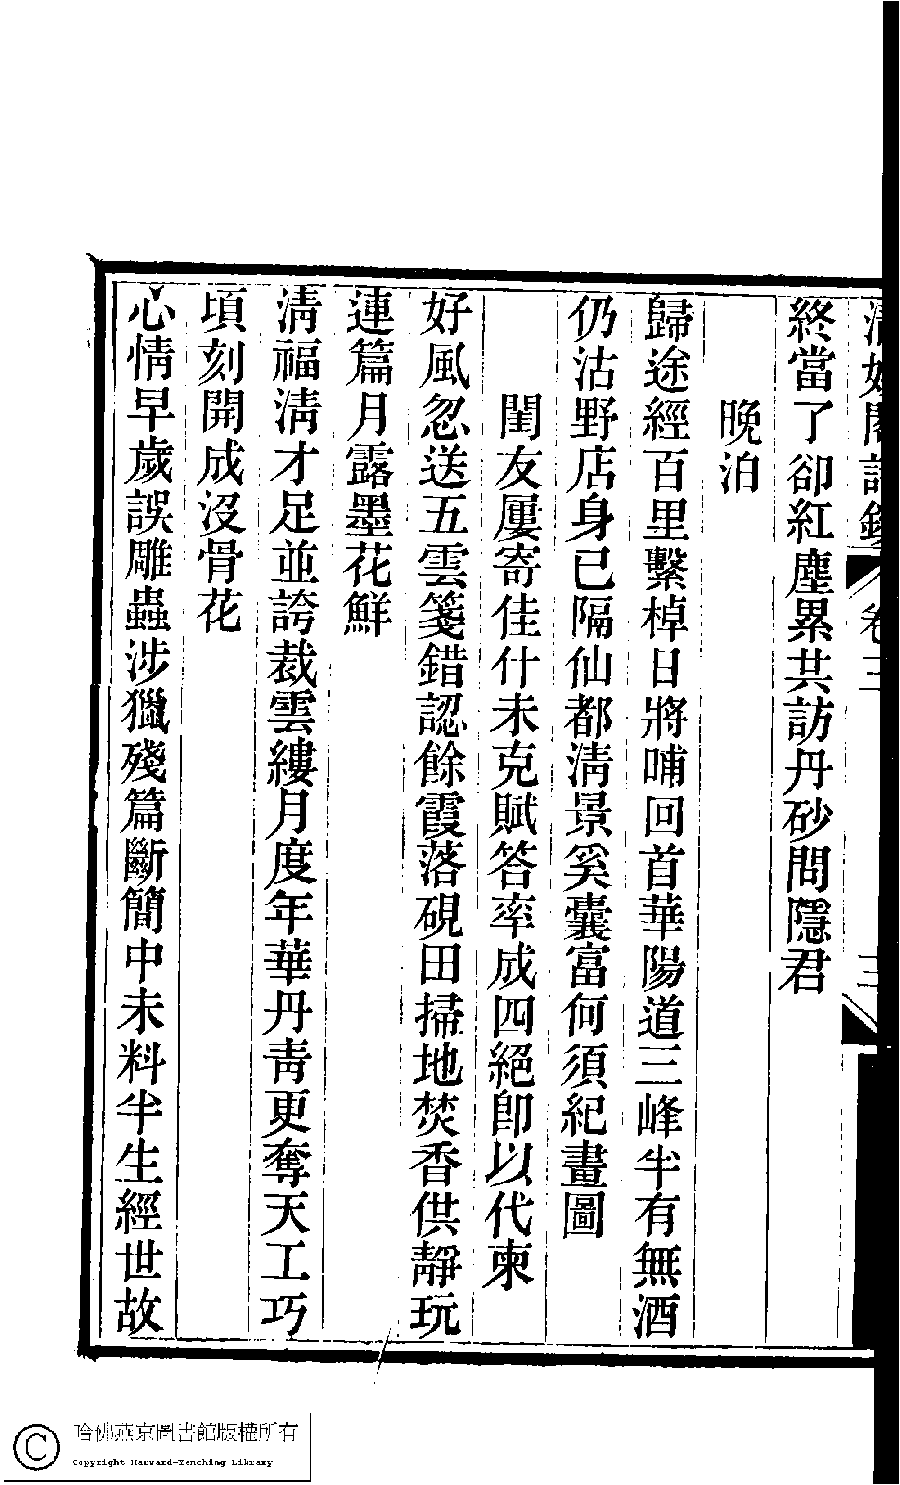 終當了卻紅塵累共訪丹砂問隱君
晚泊
歸途經百里繫棹日將晡回首華陽道三峰半有無酒
仍沽野店身已隔仙都清景奚囊富何須紀畫圖
閨友屢寄佳什未克賦答率成四絕卽以代柬
好風忽送五雲箋錯認餘霞落硯田掃地焚香供靜玩
連篇月露墨花鮮
清福清才足並誇裁雲縷月度年華丹青更奪天工巧
頃刻開成沒骨花
心情早歲誤雕蟲涉獵殘篇斷簡中未料半生經世故
哈佛燕京圖書館版權所有
Copyright Harvard-Yenching Library